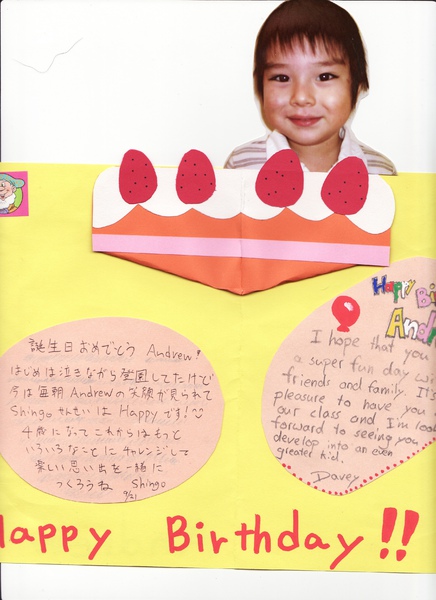 誕生日おめでとう Andrew!
はじめは泣きながら登園してたけど
今は毎朝Andrewの笑顔が見られて
ShingoせんせいはHappyです!
4歳になってこれからはもっと
いろいろなことにチャレンジして
楽しい思い出を一緒に
つくろうね Shingo
9/21
Happy Bi
And
I hope that you
a super fun day wi
friends and family. It's
pleasure to have you
our class and I'm look
forward to seeing you
develop into an even
greater kid.
Davey
Happy Birthday!!